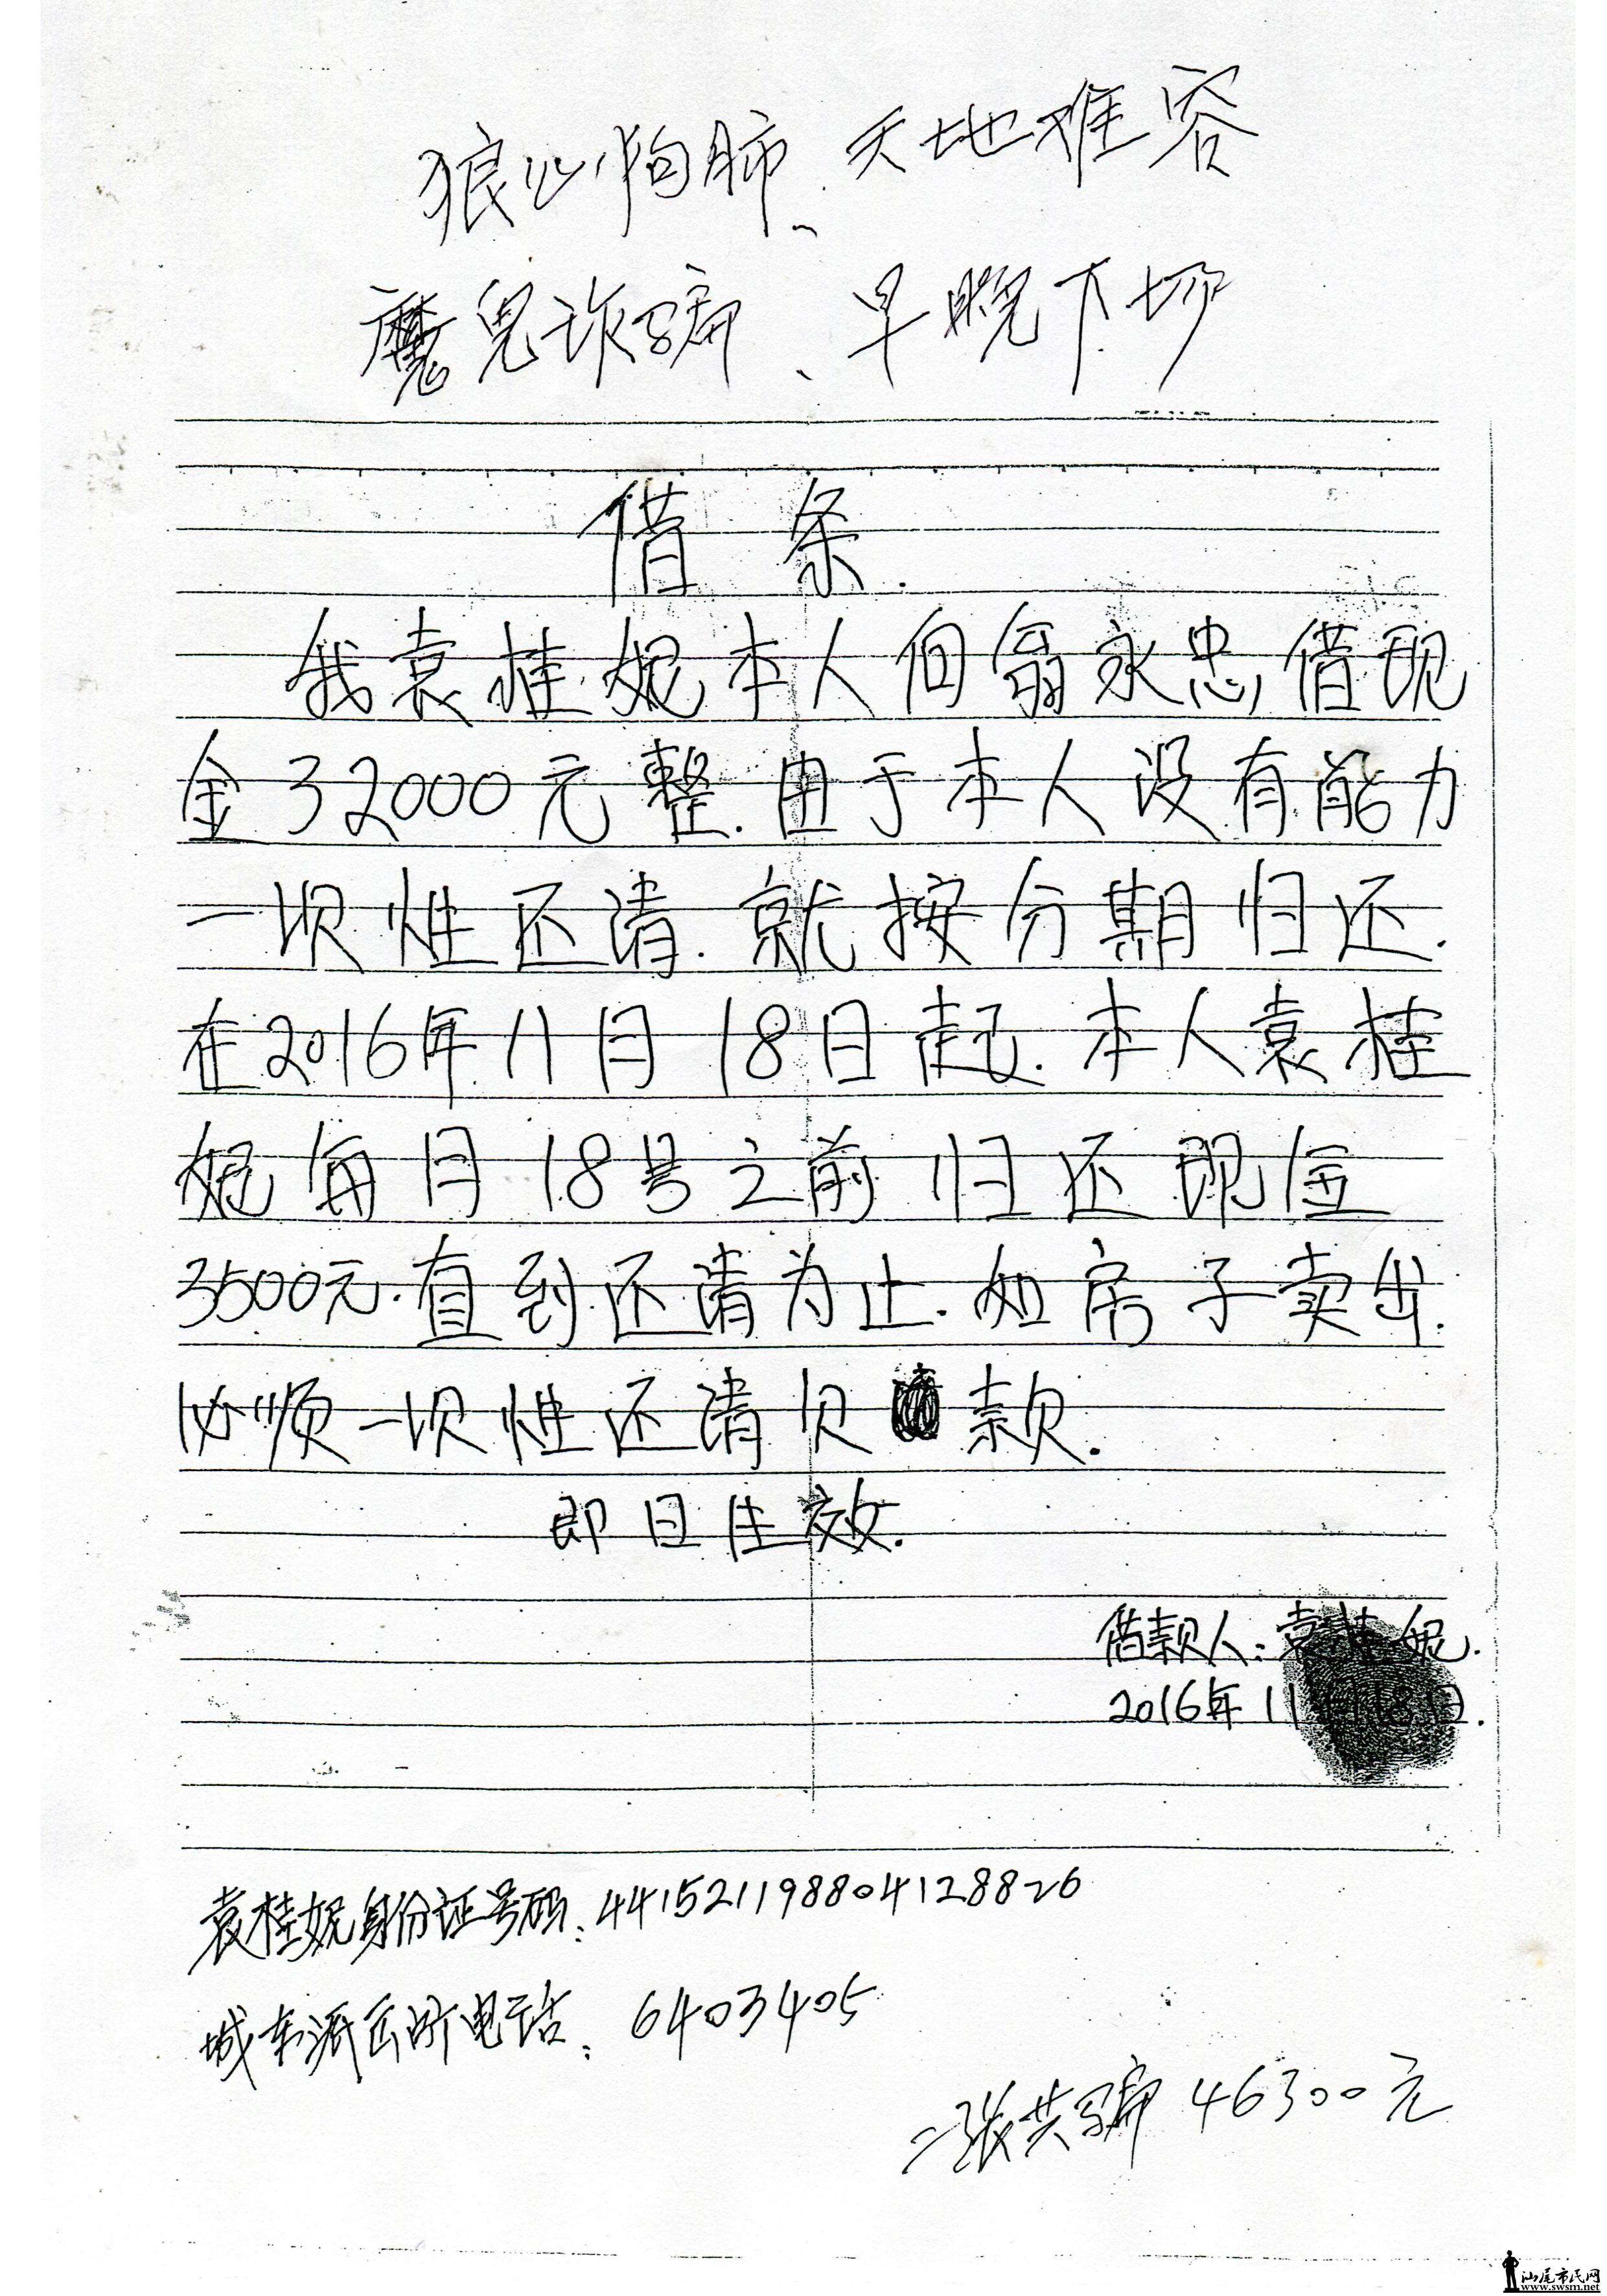 狼心狗肺、天地难容
魔鬼诈骗、早晚下场
借条.
我袁桂妮本人向翁永忠借现
金32000元整.由于本人没有能力
一次性还清.就按分期归还.
在2016年11月18日起.本人袁桂
妮每月18号之前归还现金
3500元.直到还清为止.如房子卖出.
必须一次性还清欠款.
即日生效.
借款人:袁桂妮.
2016年11月18日.
袁桂妮身份证号码:441521198804128826
城东派出所电话:6403405
二张共骗46300元
汕尾市民网
www.swsm.net